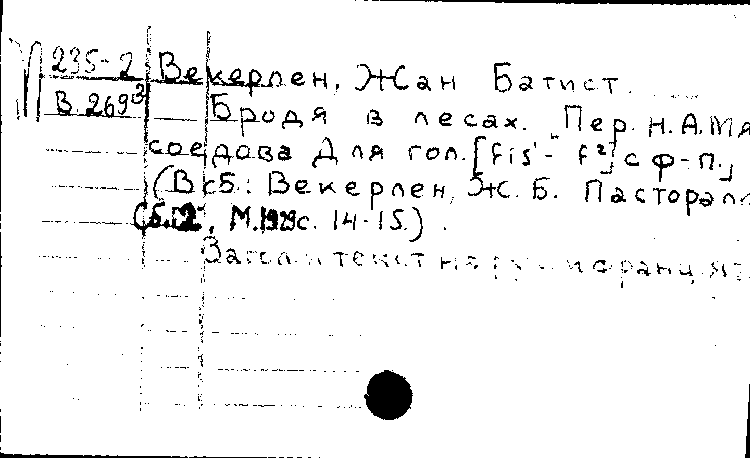 П 235-2 Векерлен, Жан Батист.
В.269³ Бродя в лесах. Пер. Н.А.Мя
соедова Для гол. [fis'- f²] с ф-п.,
(В сб.: Векерлен, Ж. Б. Пасторал
М.1929 с. 14-15.).
Загол. и текст на и франц. яз.